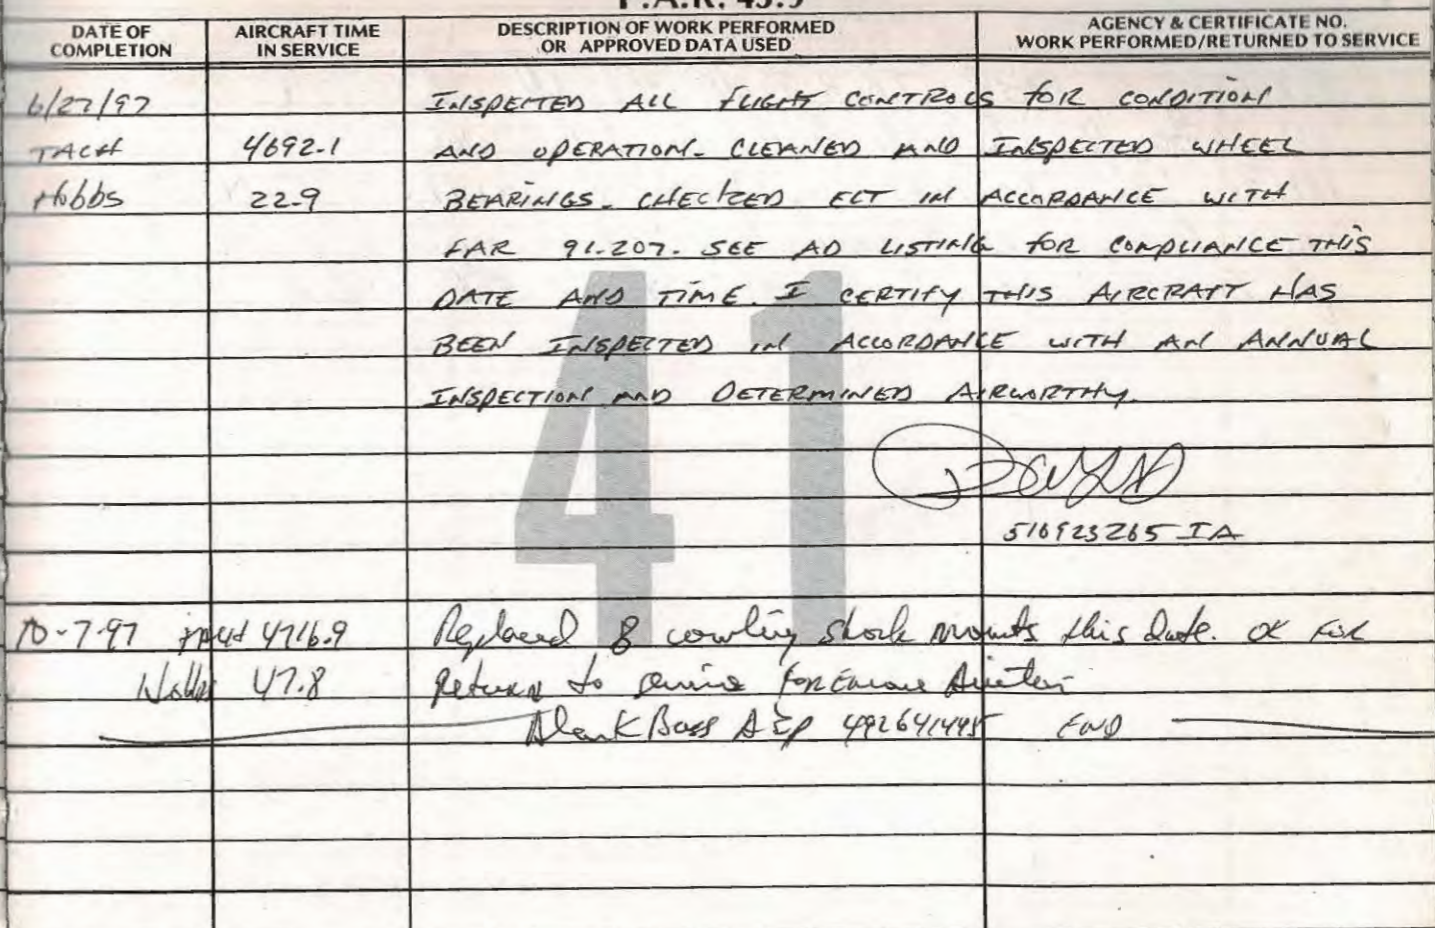 F.A.R. 43.9
DATE OF COMPLETION AIRCRAFT TIME IN SERVICE DESCRIPTION OF WORK PERFORMED OR APPROVED DATA USED AGENCY & CERTIFICATE NO. WORK PERFORMED/RETURNED TO SERVICE
6/27/97 INSPECTED ALL FLIGHT CONTROLS FOR CONDITION
TACH 4692.1 AND OPERATION. CLEANED AND INSPECTED WHEEL
Hobbs 22.9 BEARINGS. CHECKED ELT IN ACCORDANCE WITH
FAR 91.207. SEE AD LISTING FOR COMPLIANCE THIS
DATE AND TIME. I CERTIFY THIS AIRCRAFT HAS
BEEN INSPECTED IN ACCORDANCE WITH AN ANNUAL
INSPECTION AND DETERMINED AIRWORTHY.
41
516923265 IA
10-7-97 4716.9 Replaced 8 cowling shock mounts this date. OK FOR
47.8 Return to service
A&P END